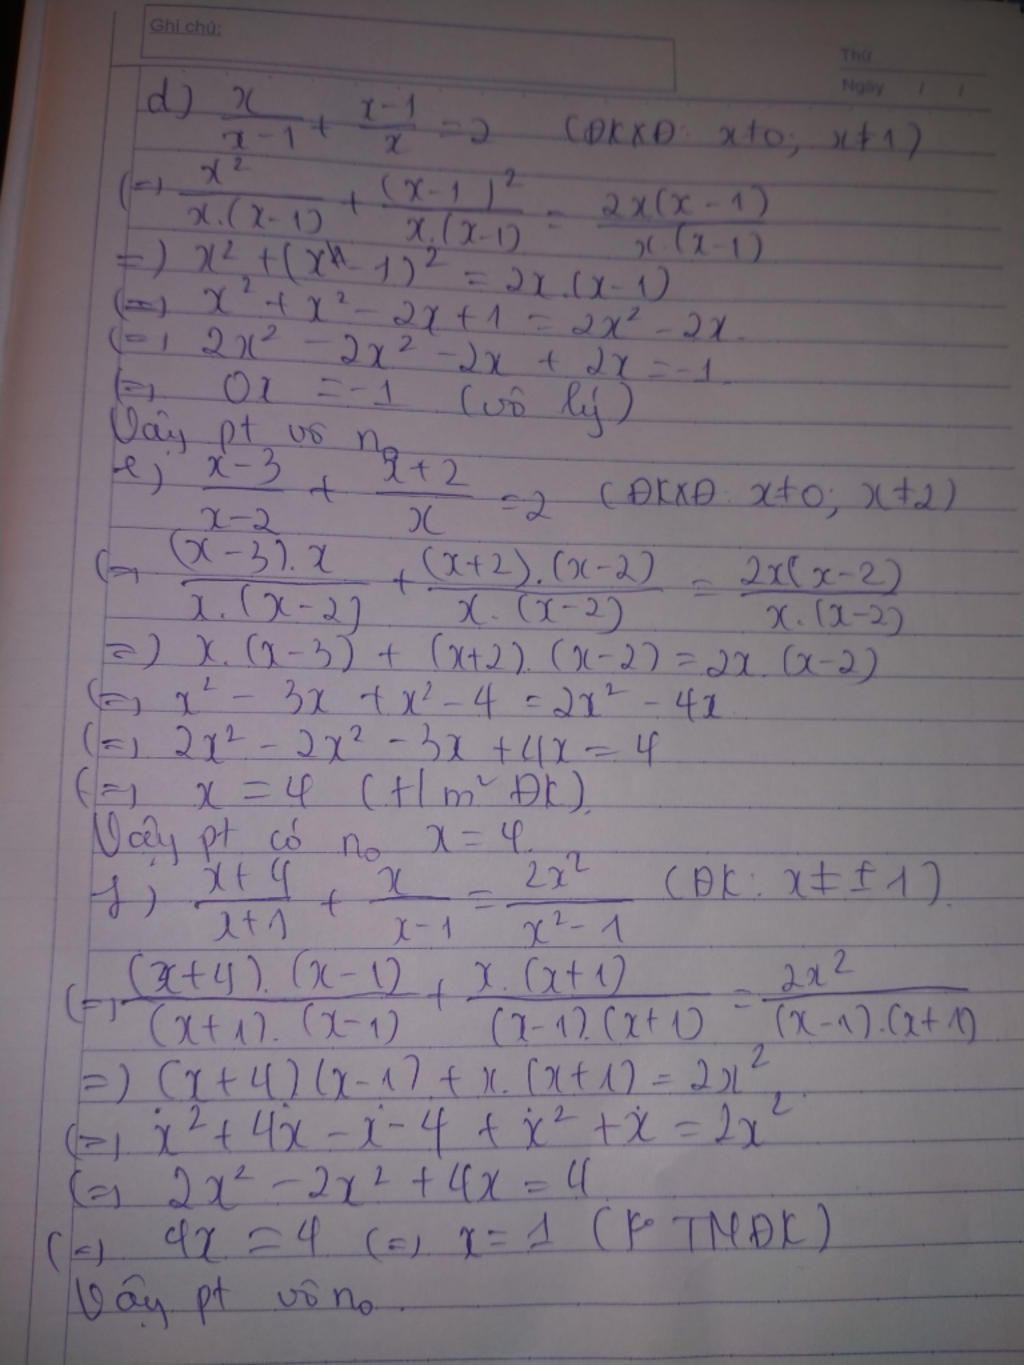 Ghi chú:
Thứ
Ngày / /
d) x/(x-1) + (x-1)/x = 2 (ĐKXĐ: x≠0; x≠1)
(=) x²/(x.(x-1)) + (x-1)²/(x.(x-1)) = 2x(x-1)/(x.(x-1))
=) x² + (x-1)² = 2x.(x-1)
(=) x² + x² - 2x + 1 = 2x² - 2x
(=) 2x² - 2x² - 2x + 2x = -1
(=) 0x = -1 (vô lý)
Vậy pt vô no
e) (x-3)/(x-2) + (x+2)/x = 2 (ĐKXĐ: x≠0; x≠2)
(=) (x-3).x/(x.(x-2)) + (x+2).(x-2)/(x.(x-2)) = 2x(x-2)/(x.(x-2))
=) x.(x-3) + (x+2).(x-2) = 2x.(x-2)
(=) x² - 3x + x² - 4 = 2x² - 4x
(=) 2x² - 2x² - 3x + 4x = 4
(=) x = 4 (t/m² ĐK).
Vậy pt có no x = 4.
f) (x+4)/(x+1) + x/(x-1) = 2x²/(x²-1) (ĐK: x≠±1).
(=) (x+4).(x-1)/((x+1).(x-1)) + x.(x+1)/((x-1).(x+1)) = 2x²/((x-1).(x+1))
=) (x+4)(x-1) + x.(x+1) = 2x²
(=) x² + 4x - x - 4 + x² + x = 2x²
(=) 2x² - 2x² + 4x = 4
(=) 4x = 4 (=) x = 1 (Ko TMĐK)
Vậy pt vô no.